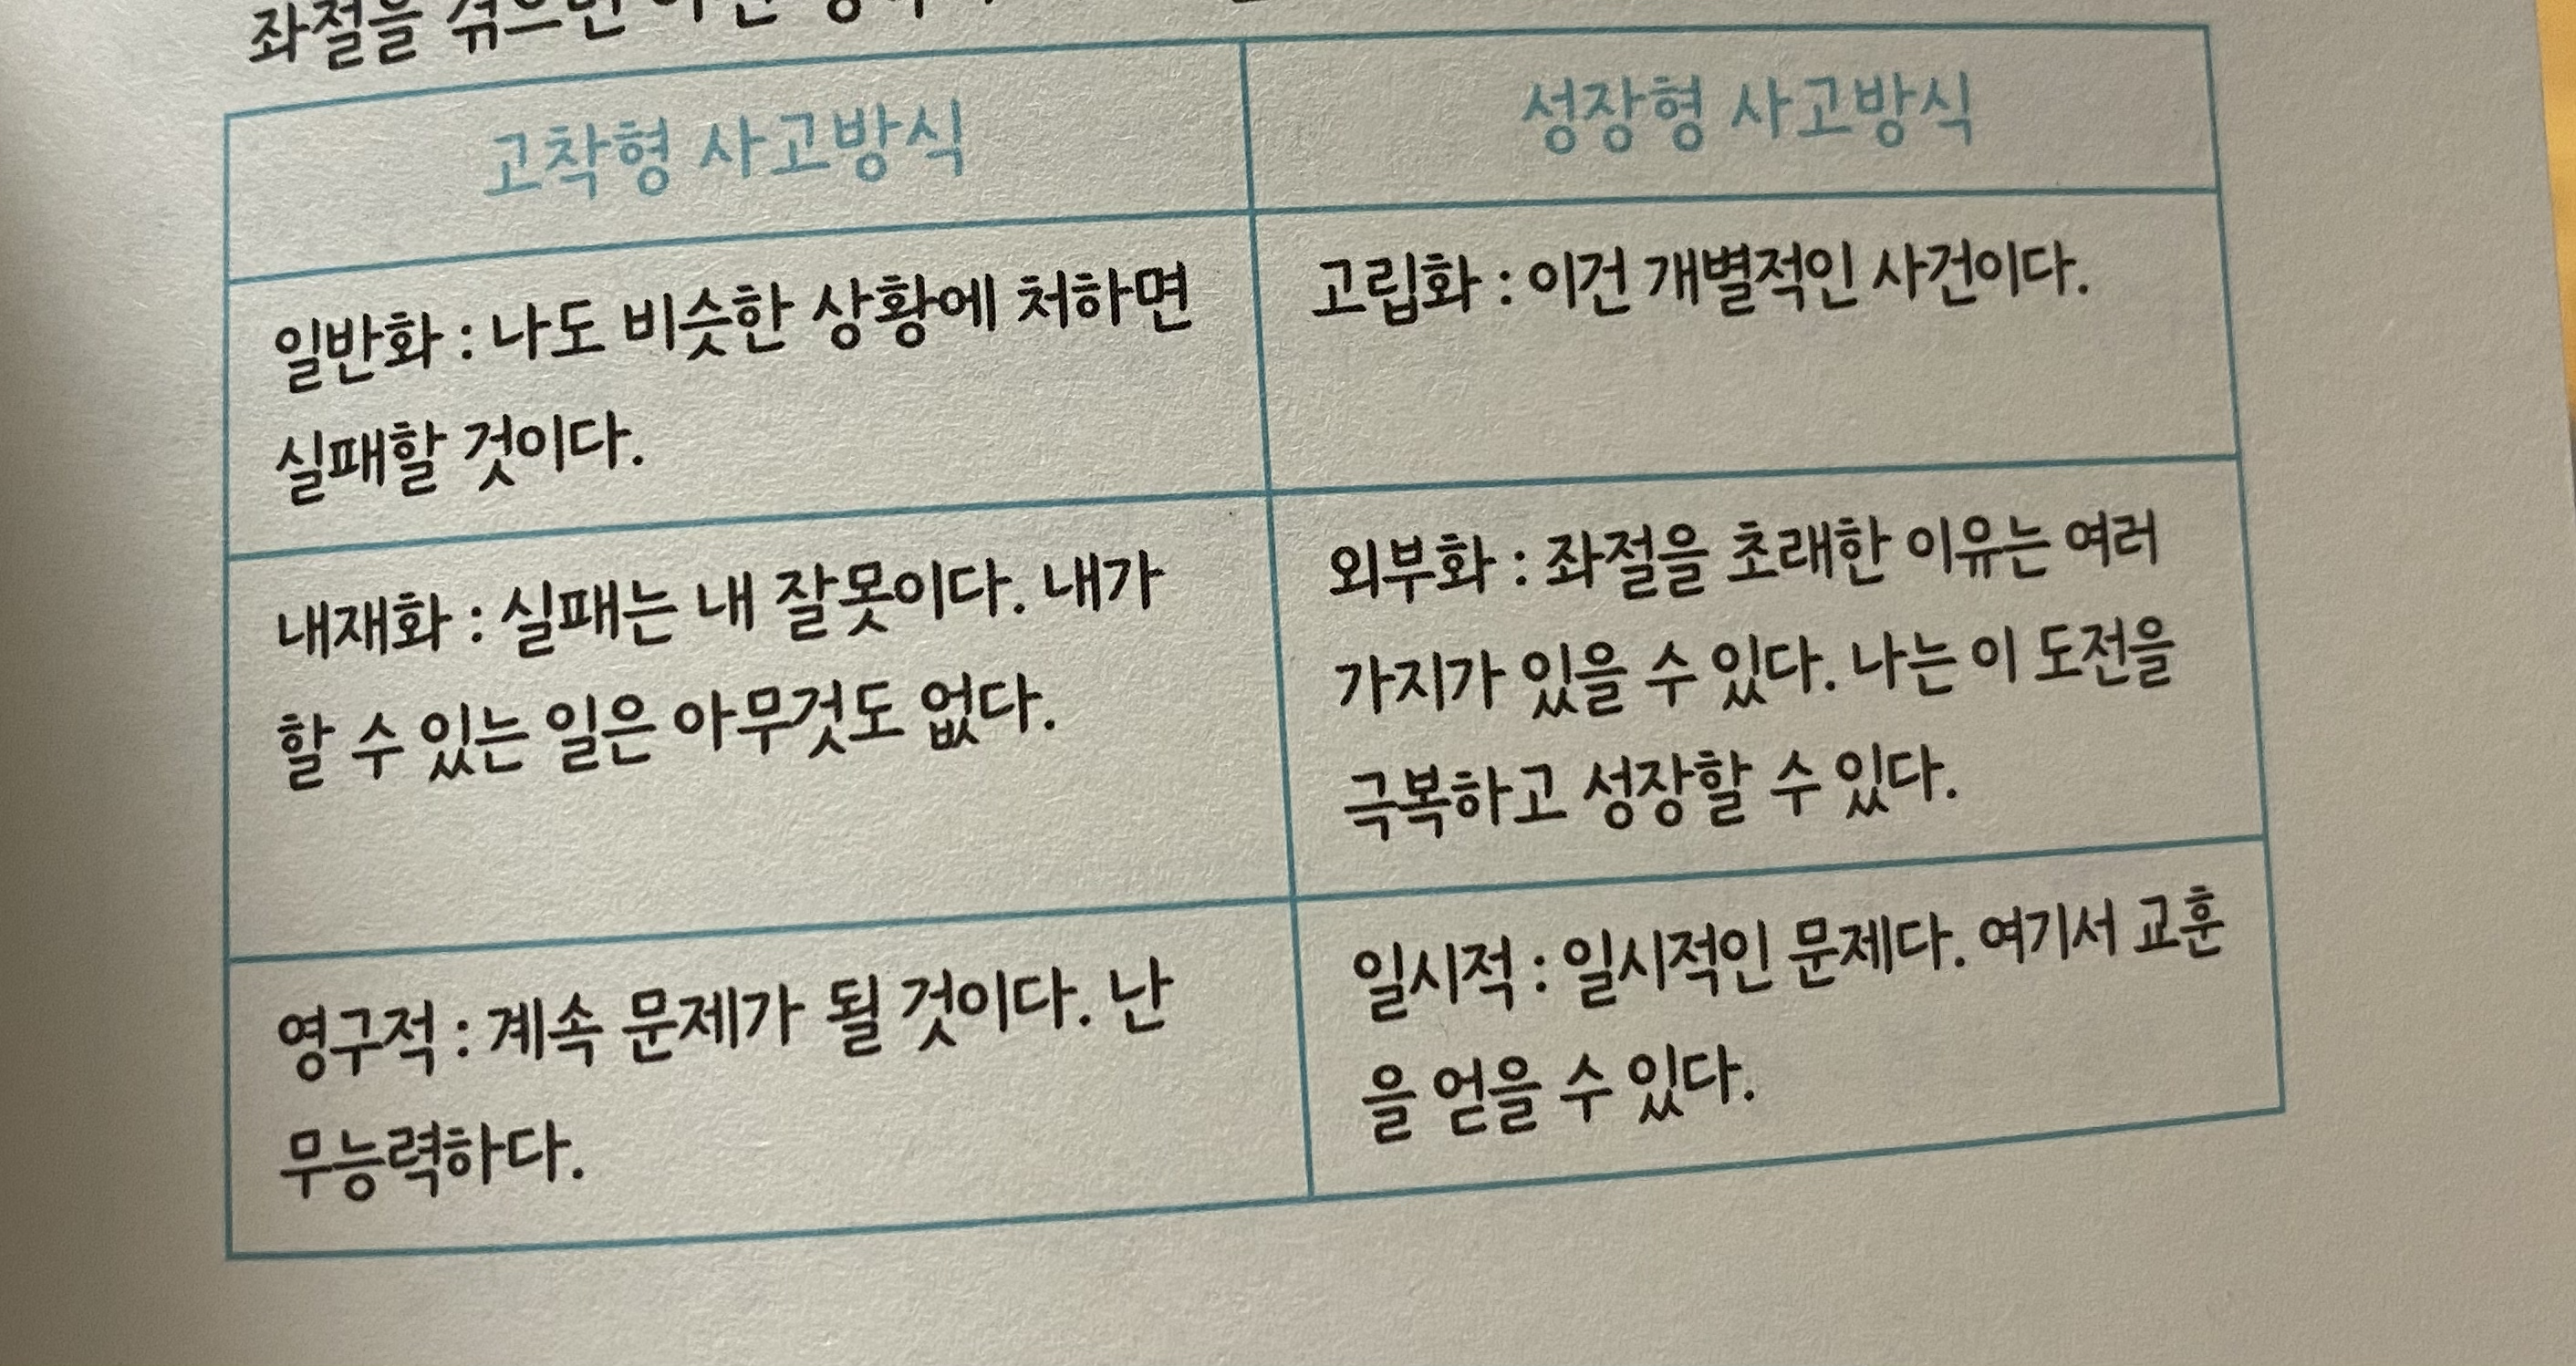 좌절을 겪으면
고착형 사고방식
성장형 사고방식
일반화 : 나도 비슷한 상황에 처하면
실패할 것이다.
고립화 : 이건 개별적인 사건이다.
내재화 : 실패는 내 잘못이다. 내가
할 수 있는 일은 아무것도 없다.
외부화 : 좌절을 초래한 이유는 여러
가지가 있을 수 있다. 나는 이 도전을
극복하고 성장할 수 있다.
영구적 : 계속 문제가 될 것이다. 난
무능력하다.
일시적 : 일시적인 문제다. 여기서 교훈
을 얻을 수 있다.